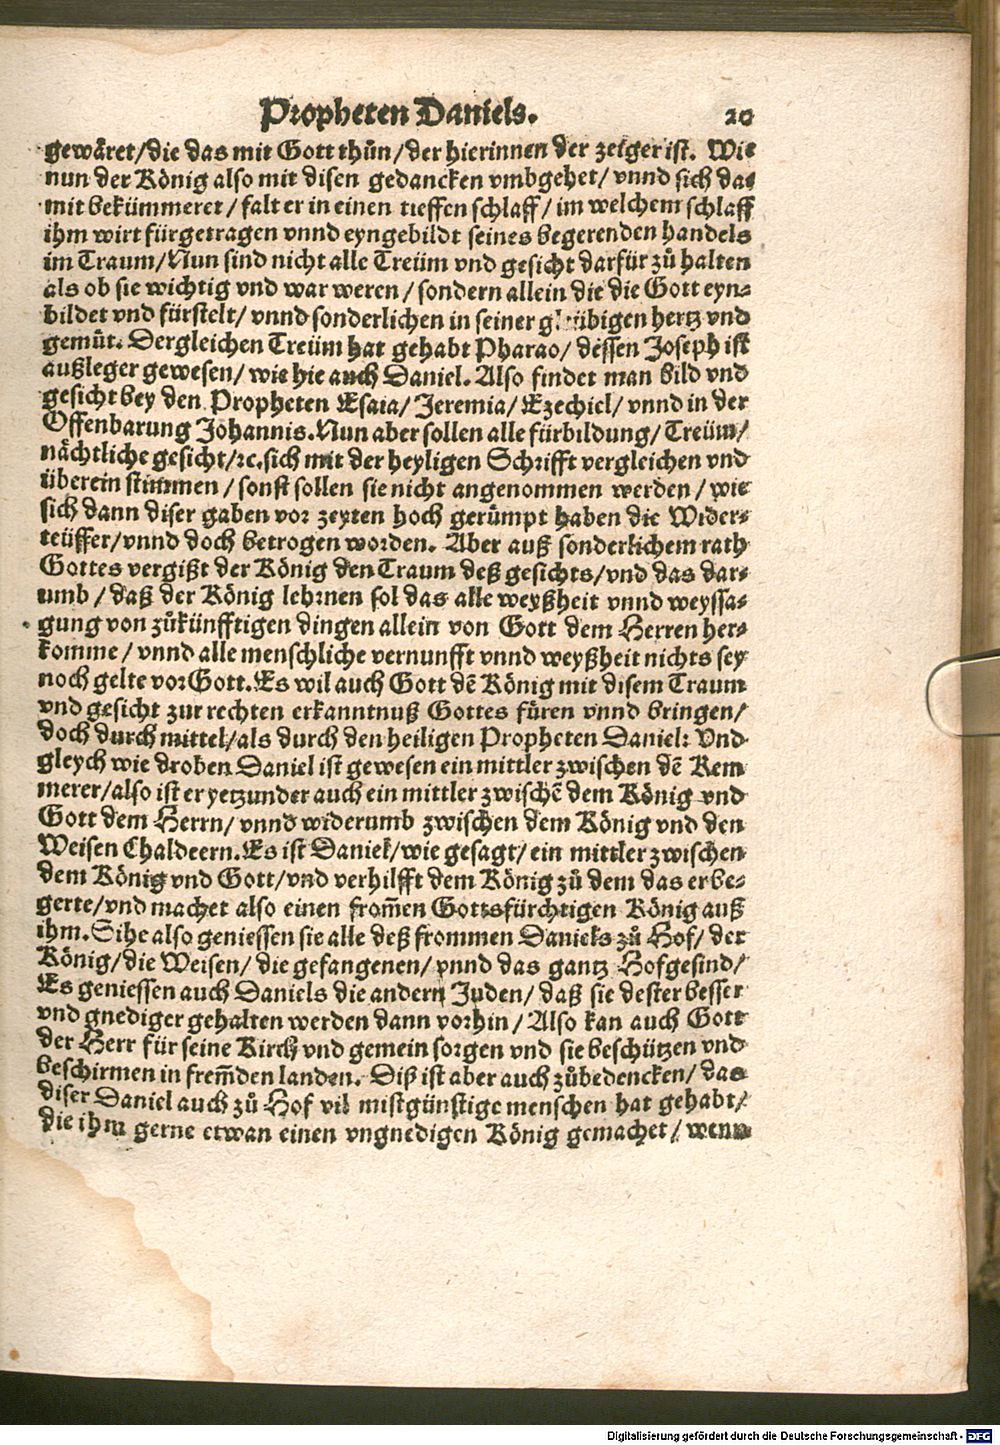 Propheten Daniels. 20
gewäret/die das mit Gott thůn/der hierinnen der zeiger ist. Wie
nun der König also mit disen gedancken vmbgehet/ vnnd sich das
mit bekümmeret/ falt er in einen tieffen schlaff/ im welchem schlaff
ihm wirt fürgetragen vnnd eyngebildt seines begerenden handels
im Traum/Nun sind nicht alle Treüm vnd gesicht darfür zů halten
als ob sie wichtig vnd war weren/ sondern allein die die Gott eyn⸗
bildet vnd fürstelt/ vnnd sonderlichen in seiner glaubigen hertz vnd
gemüt. Dergleichen Treüm hat gehabt Pharao/ dessen Joseph ist
außleger gewesen/ wie hie auch Daniel. Also findet man bild vnd
gesicht bey den Propheten Esaia/ Jeremia/ Ezechiel/ vnnd in der
Offenbarung Johannis. Nun aber sollen alle fürbildung/ Treüm/
nächtliche gesicht/ꝛc. sich mit der heyligen Schrifft vergleichen vnd
überein stimmen/ sonst sollen sie nicht angenommen werden/ wie
sich dann diser gaben vor zeyten hoch gerümpt haben die Wider⸗
teüffer/vnnd doch betrogen worden. Aber auß sonderlichem rath
Gottes vergißt der König den Traum deß gesichts/vnd das dar⸗
umb/ daß der König lehrnen sol das alle weyßheit vnnd weyssa⸗
gung von zůkünfftigen dingen allein von Gott dem Herren her⸗
komme/ vnnd alle menschliche vernunfft vnnd weyßheit nichts sey
noch gelte vor Gott. Es wil auch Gott dẽ König mit disem Traum
vnd gesicht zur rechten erkanntnuß Gottes füren vnnd bringen/
doch durch mittel/als durch den heiligen Propheten Daniel: Vnd
gleych wie droben Daniel ist gewesen ein mittler zwischen dẽ Kem
merer/also ist er yetzunder auch ein mittler zwischẽ dem König vnd
Gott dem Herrn/ vnnd widerumb zwischen dem König vnd den
Weisen Chaldeern. Es ist Daniel/wie gesagt/ ein mittler zwischen
dem König vnd Gott/vnd verhilfft dem König zů dem das er be⸗
gerte/vnd machet also einen from̃en Gottsfürchtigen König auß
ihm. Sihe also geniessen sie alle deß frommen Daniels zů Hof/ der
König/die Weisen/ die gefangenen/ vnnd das gantz Hofgesind/
Es geniessen auch Daniels die andern Juden/ daß sie dester besser
vnd gnediger gehalten werden dann vorhin/ Also kan auch Gott
der Herr für seine Kirch vnd gemein sorgen vnd sie beschützen vnd
beschirmen in frem̃den landen. Diß ist aber auch zůbedencken/ das
diser Daniel auch zů Hof vil mistgünstige menschen hat gehabt/
die ihm gerne etwan einen vngnedigen König gemachet/ wenn
Digitalisierung gefördert durch die Deutsche Forschungsgemeinschaft - DFG